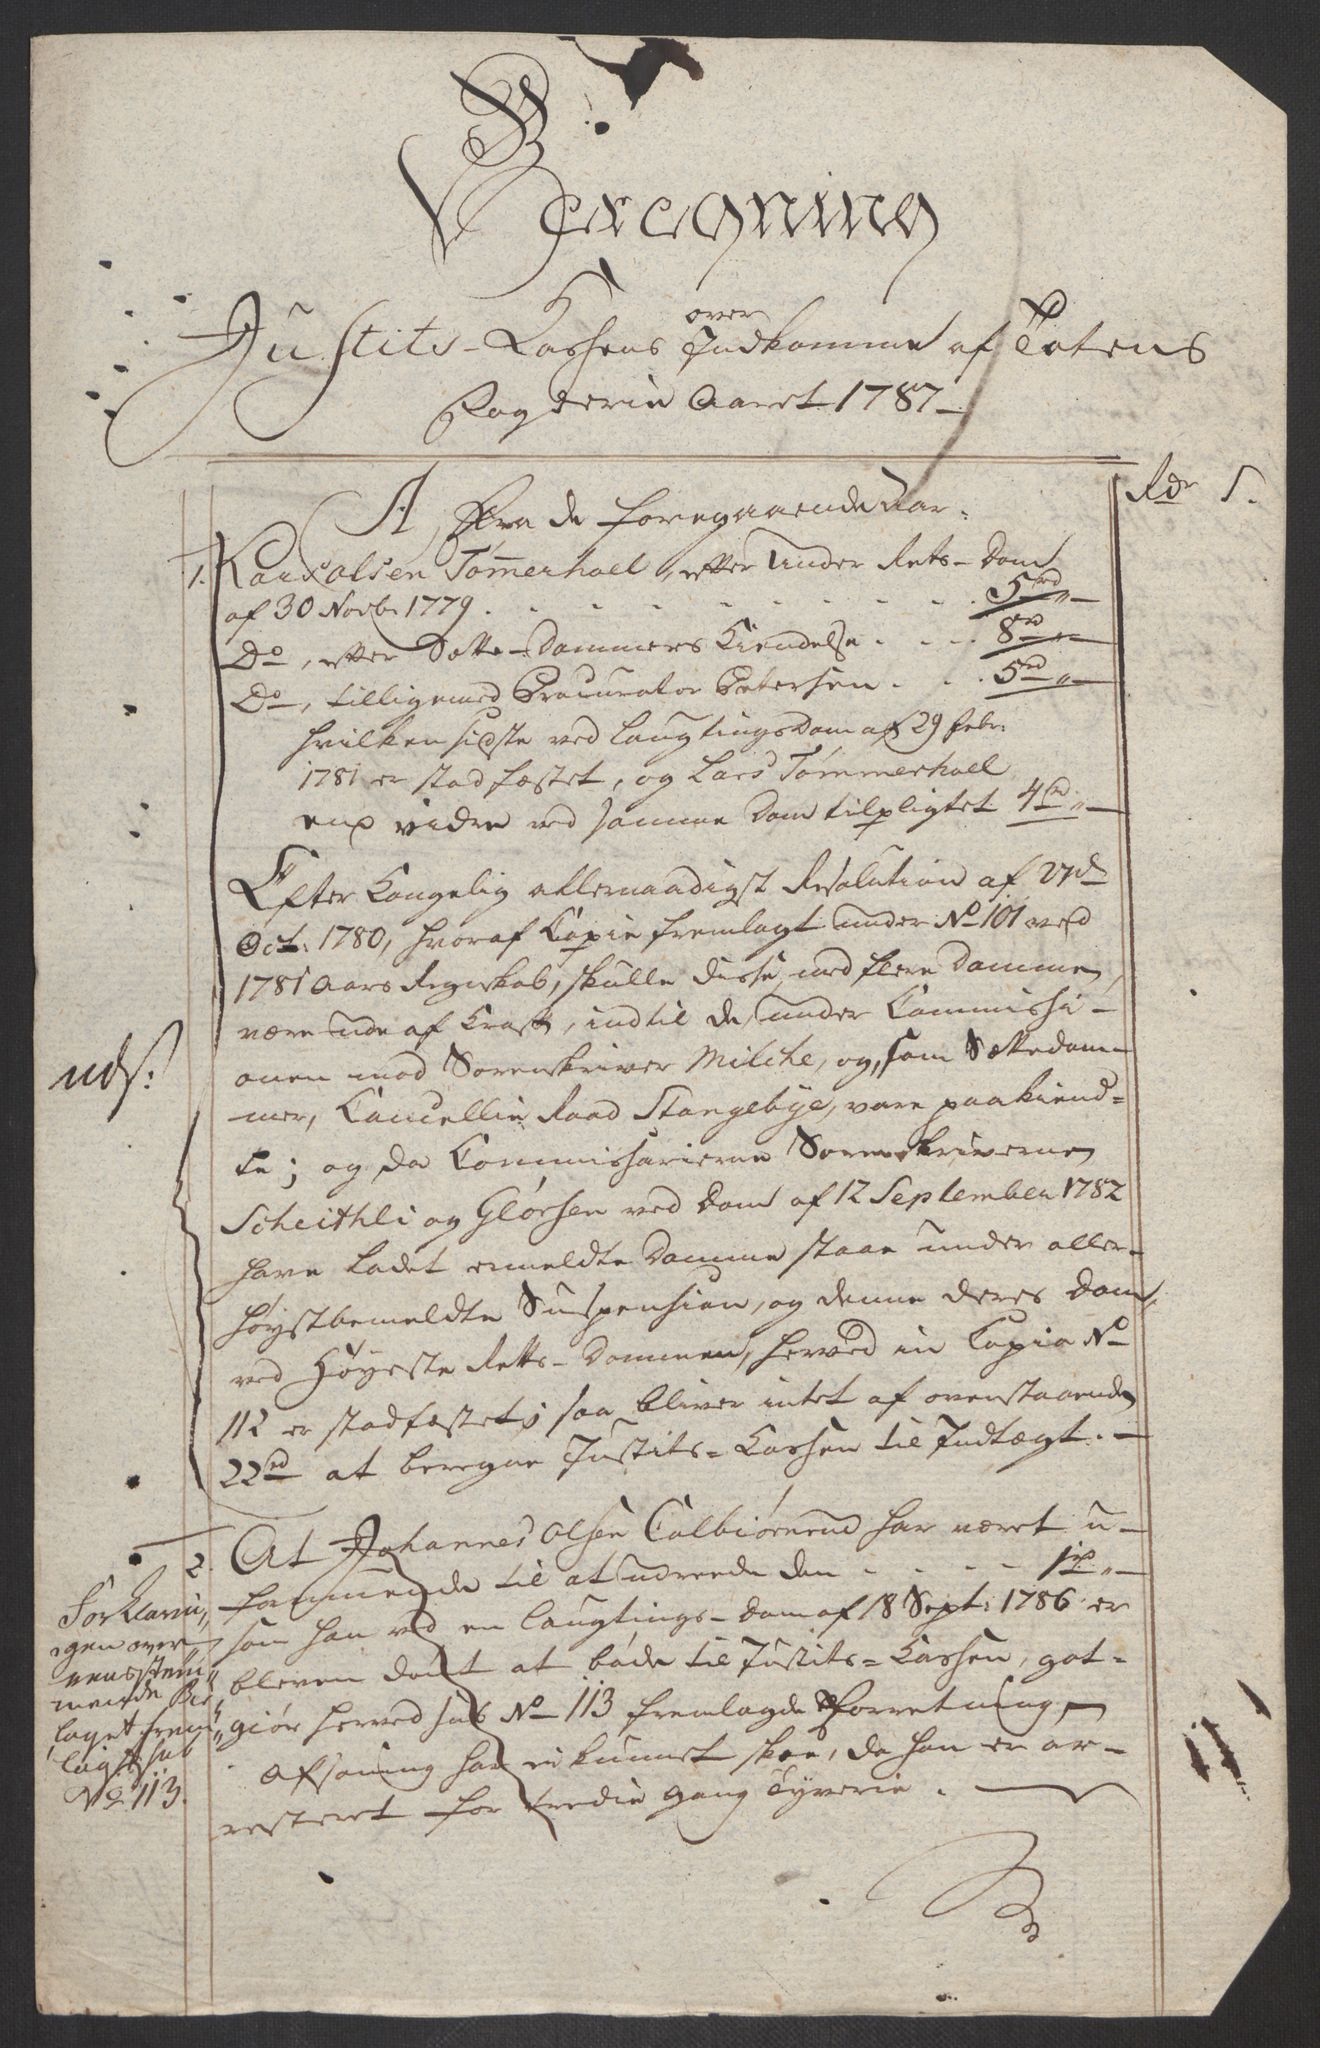 Beregning
over
Justits-Cassens Indkomme af Totens
Fogderie Aaret 1787
Rdr S.
A, Fra de foregaaende Aar.
1. Lars Olsen Tømmerhoel, efter Under Rets-Dom
af 30 Novbr 1779 . . . . . . . . . 5rd "
Do, efter Sætte-Dommers Kiendelse . . . 8rd "
Do, tilligemed Procurator Petersen . . . 5rd "
hvilken sidste ved Laugtingsdom af 29 Febr:
1781 er stadfæstet, og Lars Tømmerhoel
end vidre ved samme Dom tilpligtet 4rd "
Efter Kongelig allernaadigst Resolution af 27de
Oct: 1780, hvoraf Copie fremlagt under No 101 ved
1781 Aars Regnskab, skulle disse med flere Domme
være ude af Kraft, indtil de, under Commissi-
onen mod Sorenskriver Milche, og, som Sættedom-
mer, Cancellie Raad Stangebye, vare paakiend-
te; og da Commissarierne Sorenskriverne
Scheithli og Gløersen ved Dom af 12 September 1782
have ladet ermeldte Domme staae under aller-
høystbemeldte Suspension, og denne deres Dom,
ved Høyeste Retts-Dommen, herved in Copia No
112 er stadfæstet; saa bliver intet af ovenstaaende
22rd at beregne Justits-Cassen til Indtægt. -
uds:
2. At Johannes Olsen Colbiørnrud har været u-
formuende til at udreede den . . . . 1rd "
som han ved en Laugtings-Dom af 18 Sept: 1786 er
bleven dømt at bøde til Justits-Cassen, got-
giør herved sub No 113 fremlagde Forretning,
Afsoning har ei kunnet skee, da han er ar-
resteret for tredie Gang Tyverie.
Forklarin,
gen over
eensstem
mende Bi
laget frem
lagt sub
No 113.